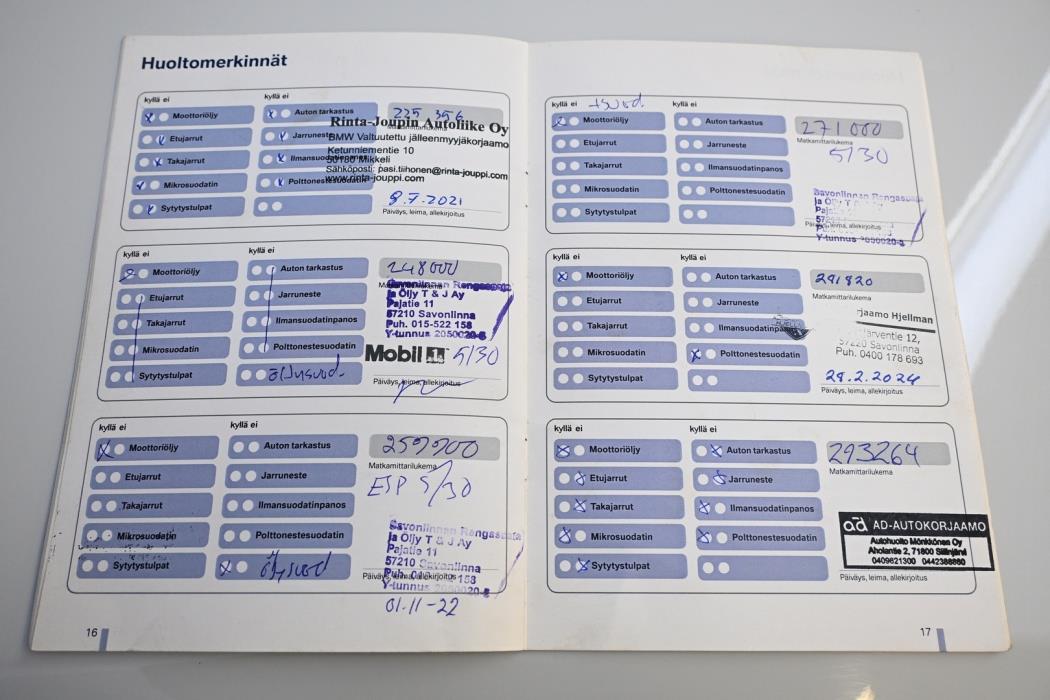 Huoltomerkinnät
kyllä ei
kyllä ei
Moottoriöljy
Auton tarkastus
225 356
Etujarrut
Jarruneste
Takajarrut
Mikrosuodatin
Sytytystulpat
Rinta-Joupin Autoliike Oy
BMW Valtuutettu jälleenmyyjäkorjaamo
Ketunniementie 10
50100 Mikkeli
Sähköposti: pasi.tiihonen@rinta-jouppi.com
www.rinta-jouppi.com
8.7.2021
Päiväys, leima, allekirjoitus
kyllä ei
kyllä ei
Moottoriöljy
Auton tarkastus
248000
Etujarrut
Jarruneste
Takajarrut
Ilmansuodatinpanos
Mikrosuodatin
Polttonestesuodatin
Sytytystulpat
öljysuod.
Savonlinnan Rengasapaja
ja Öljy T & J Ay
Pajatie 11
57210 Savonlinna
Puh. 015-522 158
Y-tunnus 2050020-8
Mobil 1 5/30
Päiväys, leima, allekirjoitus
kyllä ei
kyllä ei
Moottoriöljy
Auton tarkastus
259900
Matkamittarilukema
Etujarrut
Jarruneste
ESP 5/30
Takajarrut
Ilmansuodatinpanos
Mikrosuodatin
Polttonestesuodatin
Sytytystulpat
öljysuod
ja Öljy T & J Ay
Pajatie 11
57210 Savonlinna
Y-tunnus 2050020-8
01.11-22
16
kyllä ei
kyllä ei
Moottoriöljy
Auton tarkastus
271000
Matkamittarilukema
Etujarrut
Jarruneste
5/30
Takajarrut
Ilmansuodatinpanos
Mikrosuodatin
Polttonestesuodatin
Sytytystulpat
Y-tunnus 2050020-8
kyllä ei
kyllä ei
Moottoriöljy
Auton tarkastus
291820
Matkamittarilukema
Etujarrut
Jarruneste
Takajarrut
Ilmansuodatinpanos
Mikrosuodatin
Polttonestesuodatin
Sytytystulpat
jaamo Hjellman
57220 Savonlinna
Puh. 0400 178 693
29.2.2024
Päiväys, leima, allekirjoitus
kyllä ei
kyllä ei
Moottoriöljy
Auton tarkastus
293264
Matkamittarilukema
Etujarrut
Jarruneste
Takajarrut
Ilmansuodatinpanos
Mikrosuodatin
Polttonestesuodatin
Sytytystulpat
ad AD-AUTOKORJAAMO
Autohuolto Mönkkönen Oy
Aholantie 2, 71800 Siilinjärvi
0409821300 0442388860
Päiväys, leima, allekirjoitus
17